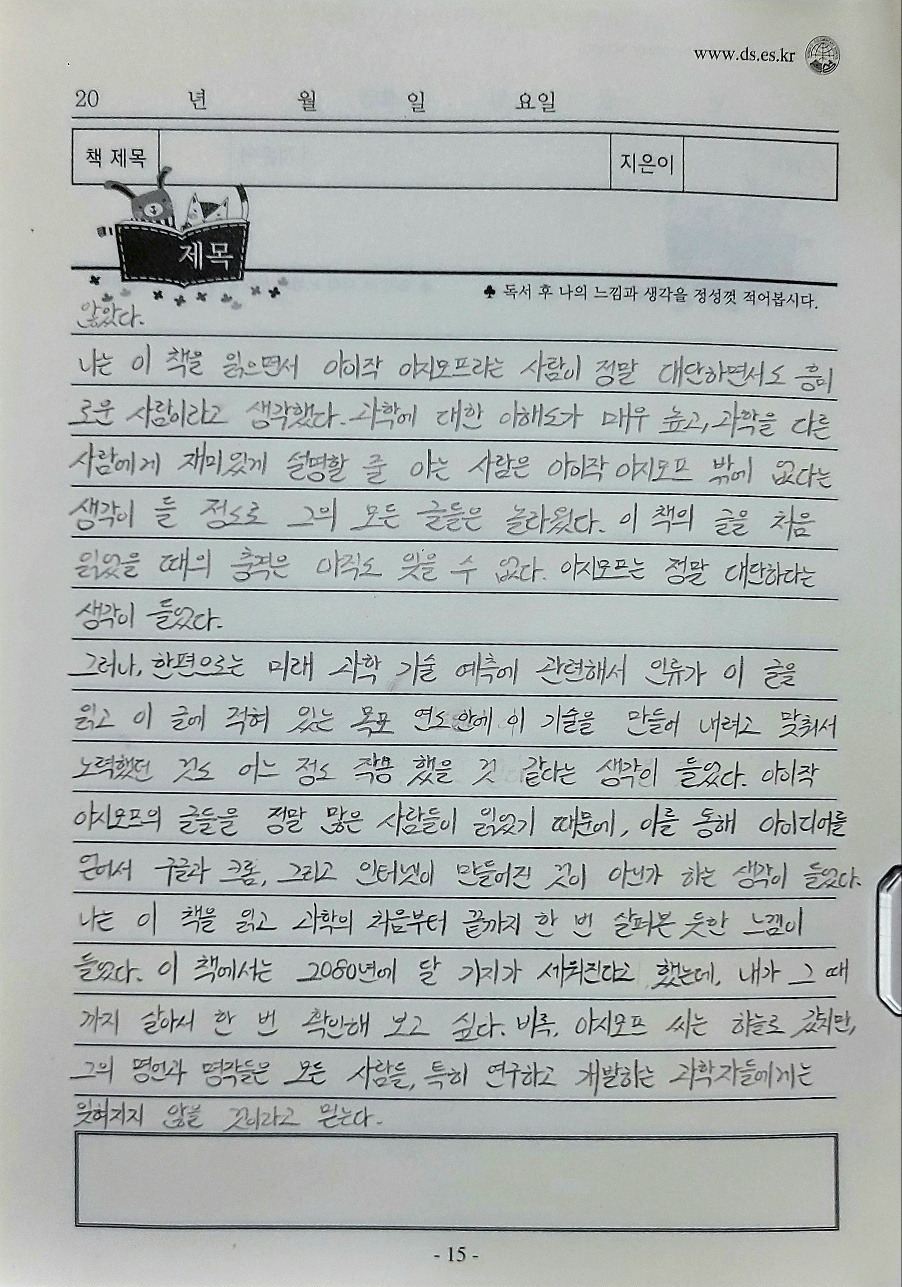 www.ds.es.kr
20 년 월 일 요일
책 제목 지은이
제목
♣ 독서 후 나의 느낌과 생각을 정성껏 적어봅시다.
않았다.
나는 이 책을 읽으면서 아이작 아시모프라는 사람이 정말 대단하면서도 흥미
로운 사람이라고 생각했다. 과학에 대한 이해도가 매우 높고, 과학을 다른
사람에게 재미있게 설명할 줄 아는 사람은 아이작 아시모프 밖에 없다는
생각이 들 정도로 그의 모든 글들은 놀라웠다. 이 책의 글을 처음
읽었을 때의 충격은 아직도 잊을 수 없다. 아시모프는 정말 대단하다는
생각이 들었다.
그러나, 한편으로는 미래 과학 기술 예측에 관련해서 인류가 이 글을
읽고 이 글에 적혀 있는 목표 연도 안에 이 기술을 만들어 내려고 맞춰서
노력했던 것도 어느 정도 작용 했을 것 같다는 생각이 들었다. 아이작
아시모프의 글들을 정말 많은 사람들이 읽었기 때문에, 이를 통해 아이디어를
얻어서 구글과 크롬, 그리고 인터넷이 만들어진 것이 아닌가 하는 생각이 들었다.
나는 이 책을 읽고 과학의 처음부터 끝까지 한 번 살펴본 듯한 느낌이
들었다. 이 책에서는 2080년에 달 기지가 세워진다고 했는데, 내가 그 때
까지 살아서 한 번 확인해 보고 싶다. 비록, 아시모프 씨는 하늘로 갔지만,
그의 명언과 명작들은 모든 사람들, 특히 연구하고 개발하는 과학자들에게는
잊혀지지 않을 것이라고 믿는다.
- 15 -